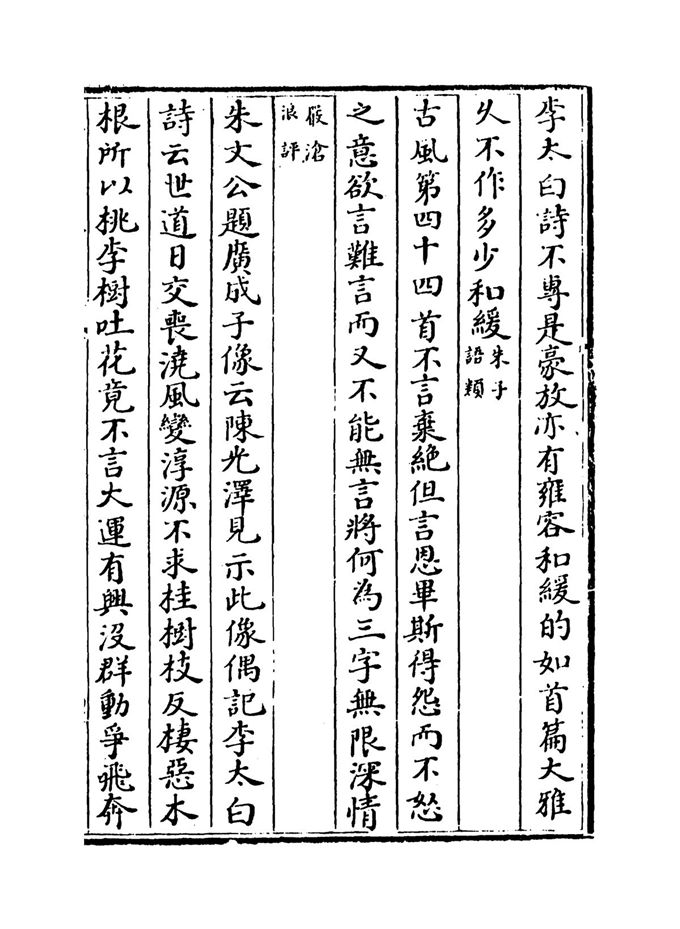 李太白詩不專是豪放亦有雍容和緩的如首篇大雅
久不作多少和緩朱子語類
古風第四十四首不言棄絶但言恩畢斯得怨而不怒
之意欲言難言而又不能無言將何為三字無限深情
嚴滄浪評
朱文公題廣成子像云陳光澤見示此像偶記李太白
詩云世道日交喪澆風變淳源不求桂樹枝反棲惡木
根所以桃李樹吐花竟不言大運有興沒群動爭飛奔